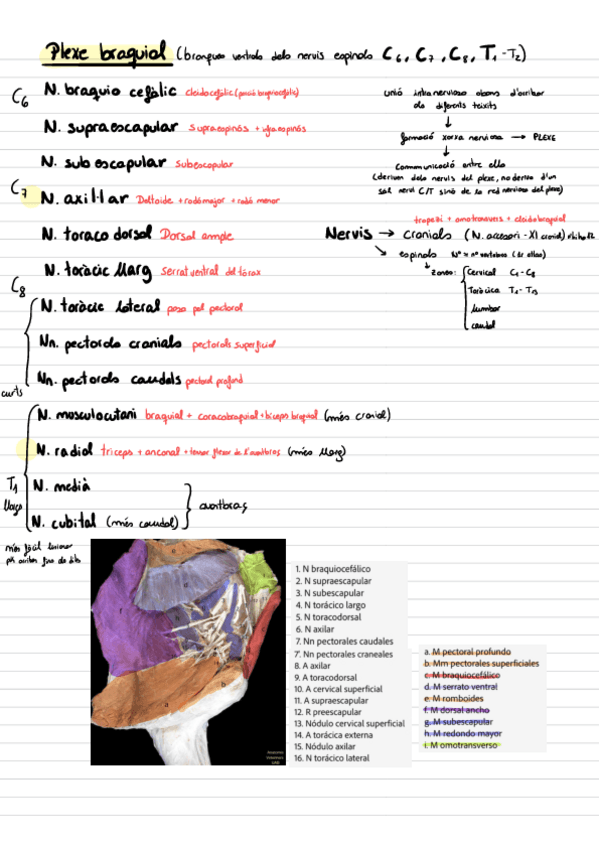 Plexe braquial (branques ventrals dels nervis espinals C6, C7, C8, T1 - T2)
C6
N. braquio cefàlic cleidocefàlic (porció braquiocefàlic)
N. supraescapular supraespinós + infraespinós
N. subescapular subescapular
C7
N. axil·lar Deltoide + rodó major + rodó menor
N. toraco dorsal Dorsal ample
N. toràcic llarg Serrat ventral del tòrax
C8
N. toràcic lateral passa pel pectoral
Nn. pectorals cranials pectorals superficial
Nn. pectorals caudals pectoral profund
curts
N. musculocutani braquial + coracobraquial + bíceps braquial (més cranial)
N. radial tríceps + anconal + tensor fàscia de l'avantbraç (més llarg)
T1
llargs
N. medià
N. cubital (més caudal)
avantbraç
més fàcil lesionar
unió intranerviosa abans d'arribar
als diferents teixits
formació xarxa nerviosa → PLEXE
Communicació entre ells
(deriven dels nervis del plexe, no deriva d'un
sol nervi C/T sinó de la red nerviosa del plexe)
trapezi + omotransvers + cleidobraquial
Nervis → cranials (N. accesori - XI cranial)
espinals nº = nº vertebres
zones: Cervical C1 - C8
Toràcica T1 - T13
lumbar
caudal
1. N braquiocefálico
2. N supraescapular
3. N subescapular
4. N torácico largo
5. N toracodorsal
6. N axilar
7. Nn pectorales caudales
7'. Nn pectorales craneales
8. A axilar
9. A toracodorsal
10. A cervical superficial
11. A supraescapular
12. R preescapular
13. Nódulo cervical superficial
14. A torácica externa
15. Nódulo axilar
16. N torácico lateral
a. M pectoral profundo
b. Mm pectorales superficiales
c. M braquiocefálico
d. M serrato ventral
e. M romboides
f. M dorsal ancho
g. M subescapular
h. M redondo mayor
i. M omotransverso